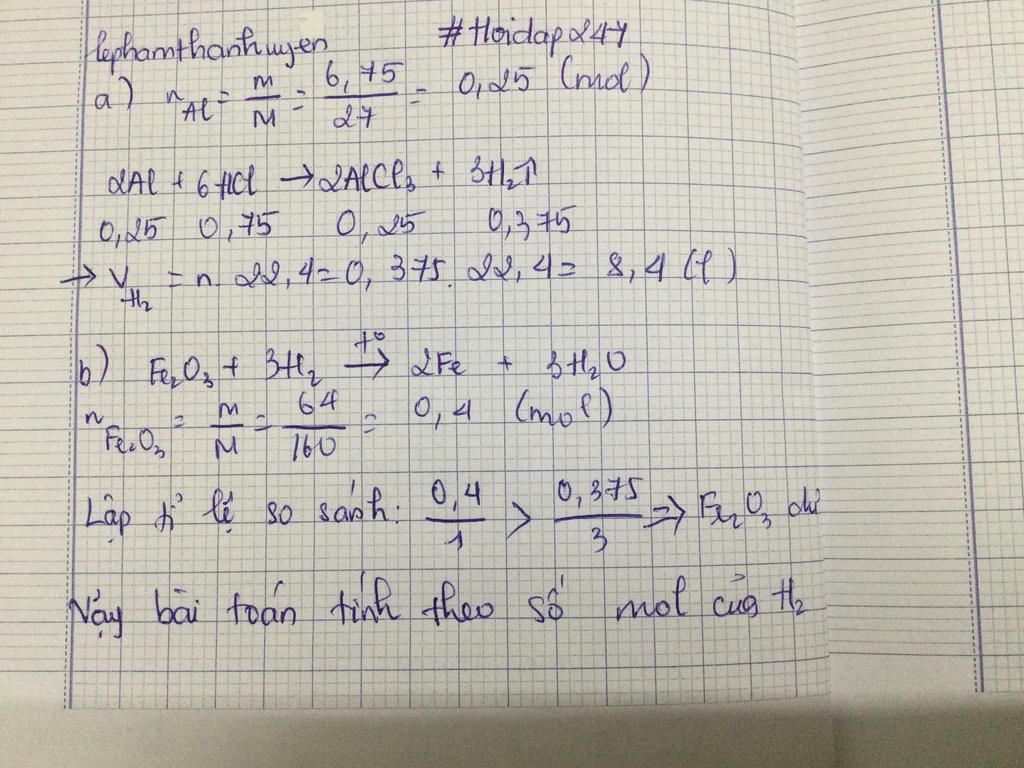 lephamthanhuyen #Hoidap247
a) n Al = m/M = 6,75/27 = 0,25 (mol)
2Al + 6HCl → 2AlCl3 + 3H2↑
0,25 0,75 0,25 0,375
→ V H2 = n. 22,4 = 0,375. 22,4 = 8,4 (l)
b) Fe2O3 + 3H2 t°→ 2Fe + 3H2O
n Fe2O3 = m/M = 64/160 = 0,4 (mol)
Lập tỉ lệ so sánh: 0,4/1 > 0,375/3 => Fe2O3 dư
Vậy bài toán tính theo số mol của H2